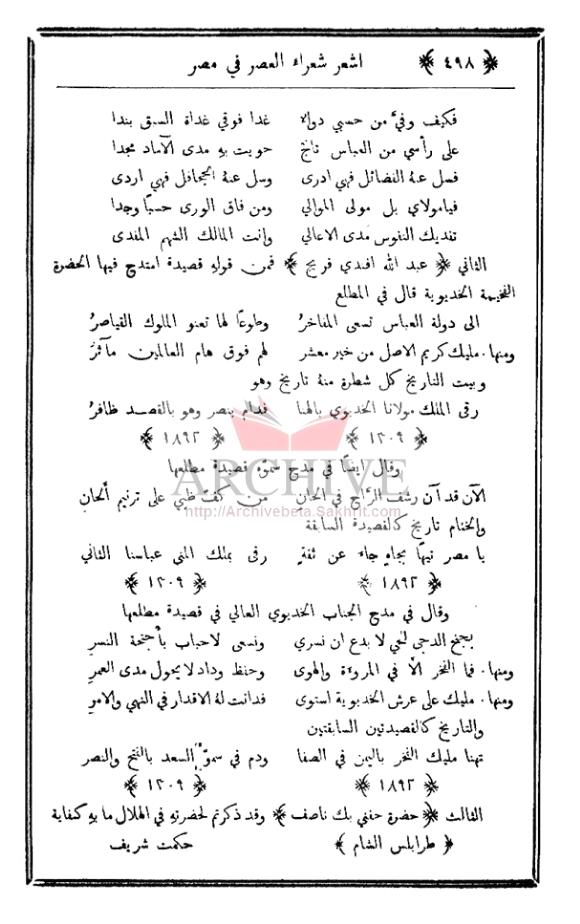 ﴿ ٤٩٨ ﴾ اشعر شعراء العصر في مصر
فكيف وفيَّ من حسبي دواه غدا فوقي غداة السبق بندا
على رأسي من العباس تاج حويت بهِ مدى الآماد مجدا
فسل عنهُ الفضائل فهي ادرى وسل عنهُ الجحافل فهي اردى
فيامولاي بل مولى الموالي ومن فاق الورى حسباً وجدا
تفديك النفوس مدى الاعالي وانت المالك الشهم المفدى
الثاني ﴿ عبد الله افندي فريج ﴾ فمن قولهِ قصيدة امتدح فيها الحضرة
الفخيمة الخديوية قال في المطلع
الى دولة العباس تسعى المفاخرُ وطوعاً لها تعنو الملوك القياصرُ
ومنها. مليك كريم الاصل من خير معشر لهم فوق هام العالمين مآثرُ
وبيت التاريخ كل شطرة منهُ تاريخ وهو
رقى الملك مولانا الخديوي بالهنا فدام بنصر وهو بالقصد ظافرُ
﴿ ١٣٠٩ ﴾ ﴿ ١٨٩٢ ﴾
وقال ايضاً في مدح سموّه قصيدة مطلعها
ARCHIVE
الآن قد آن رشف الراح في الحان من كفّ ظبي على ترنيم ألحان
http://Archivebeta.Sakhrit.com
والختام تاريخ كالقصيدة السابقة
يا مصر تيهاً بجاهٍ جاء عن ثقةٍ رقى بملك المنى عباسنا الثاني
﴿ ١٨٩٢ ﴾ ﴿ ١٣٠٩ ﴾
وقال في مدح الجناب الخديوي العالي في قصيدة مطلعها
بجنح الدجى لحي لا بدع ان نسري ونسعى لاحباب بأجنحة النسر
ومنها. فما الفخر الاَّ في المروءة والهوى وحفظ وداد لا يحول مدى العمر
ومنها. مليك على عرش الخديوية استوى فدانت له الاقدار في النهي والامر
والتاريخ كالقصيدتين السابقتين
تهنا مليك الفخر باليمن في الصفا ودم في سموّ السعد بالفتح والنصر
﴿ ١٨٩٢ ﴾ ﴿ ١٣٠٩ ﴾
الثالث ﴿ حضرة حفني بك ناصف ﴾ وقد ذكرتم لحضرتهِ في الهلال ما بهِ كفاية
﴿ طرابلس الشام ﴾ حكمت شريف